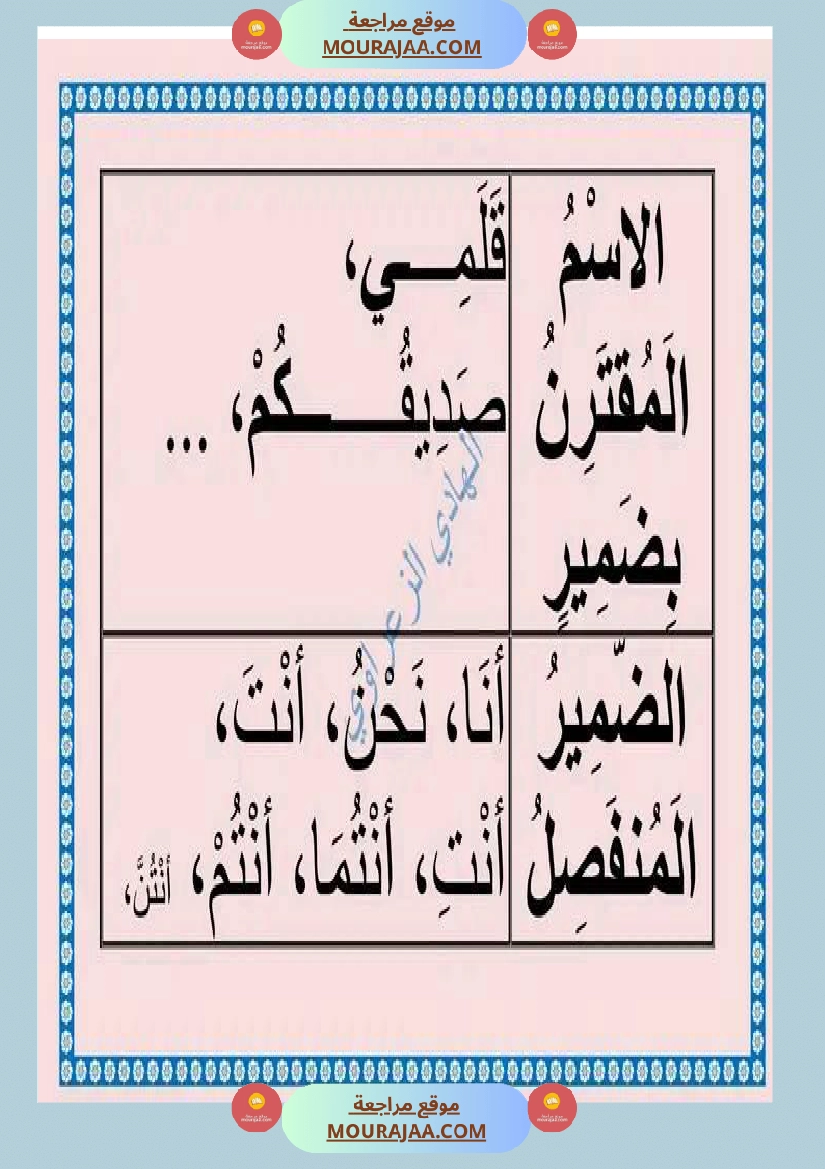 موقع مراجعة
MOURAJAA.COM
الاسْمُ
الَمُقتَرِنُ
بِضَمِيرٍ
قَلَمِـــي،
صَدِيقُـــــــكُمْ، ...
الضّمِيرُ
الَمُنفَصِلُ
أَنَا، نَحْنُ، أَنْتَ،
أَنْتِ، أَنْتُمَا، أَنْتُمْ، أَنْتُنَّ،
الهادي الزعراوي
موقع مراجعة
MOURAJAA.COM